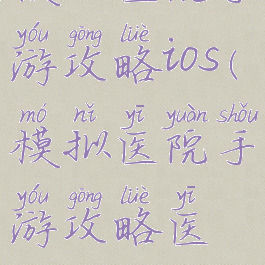 yóu gōng lüè
游攻略ios(
mó nǐ yī yuàn shǒu
模拟医院手
yóu gōng lüè yī
游攻略医